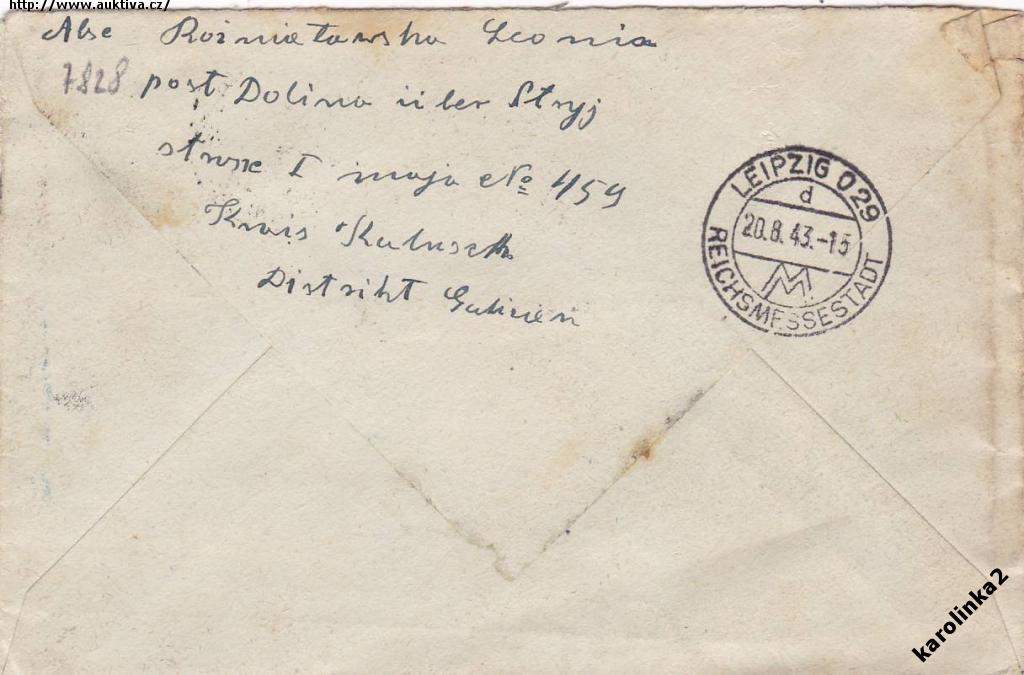 http://www.auktiva.cz/
Abse Rozniatowska Leonia
7828 post Dolina über Stryj
I maja No 459
Kreis Kalusch
Distrikt Galizien
LEIPZIG O29
d
20.8.43.-15
MM
REICHSMESSESTADT
karolinka2